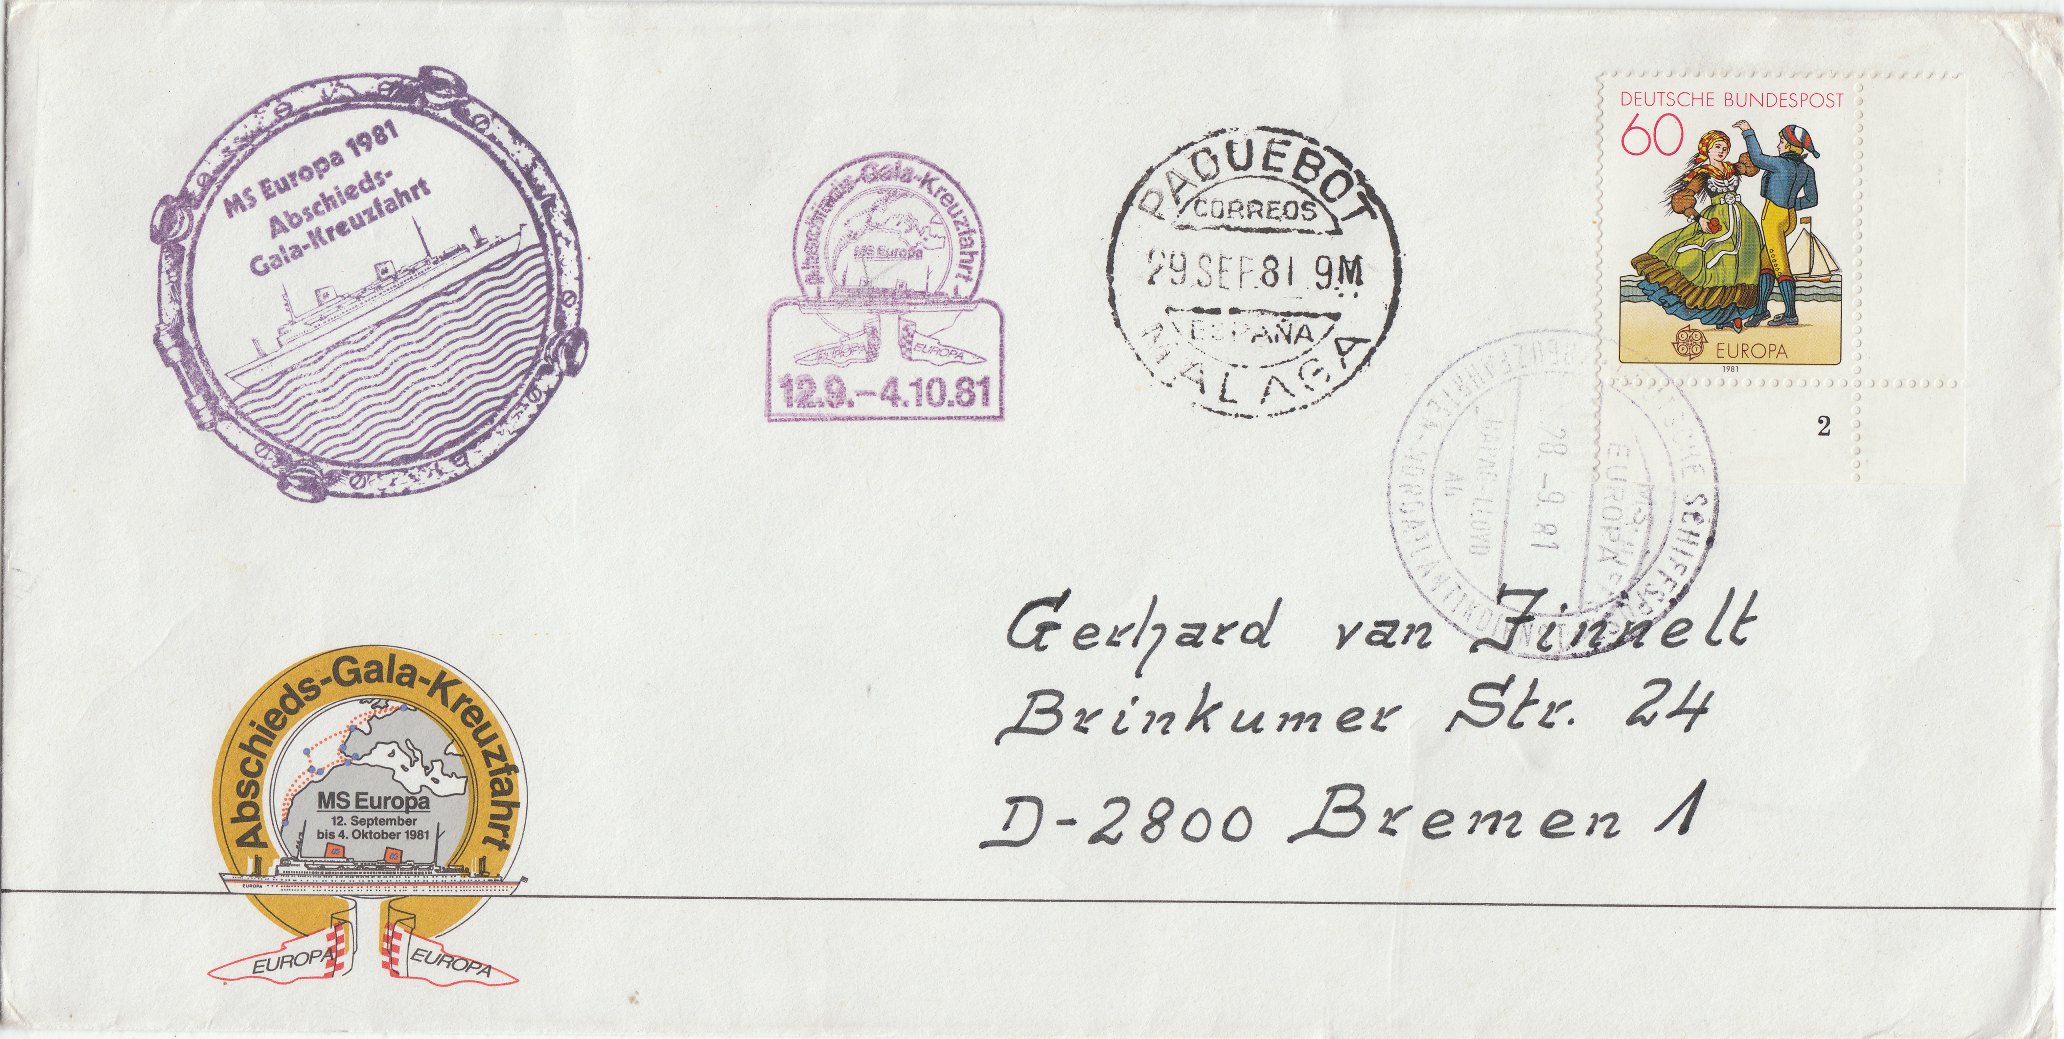 MS Europa 1981
Abschieds-
Gala-Kreuzfahrt
Abschieds-Gala-Kreuzfahrt
MS Europa
EUROPA EUROPA
12.9.-4.10.81
PAQUEBOT
CORREOS
29 SEP. 81 9M
ESPAÑA
MALAGA
DEUTSCHE BUNDESPOST
60
EUROPA
1981
2
SCHIFFSPOST
M.S.
EUROPA
28.-9.81
LLOYD
AG
Gerhard van Finnelt
Brinkumer Str. 24
D-2800 Bremen 1
-Abschieds-Gala-Kreuzfahrt-
MS Europa
12. September
bis 4. Oktober 1981
EUROPA
EUROPA EUROPA